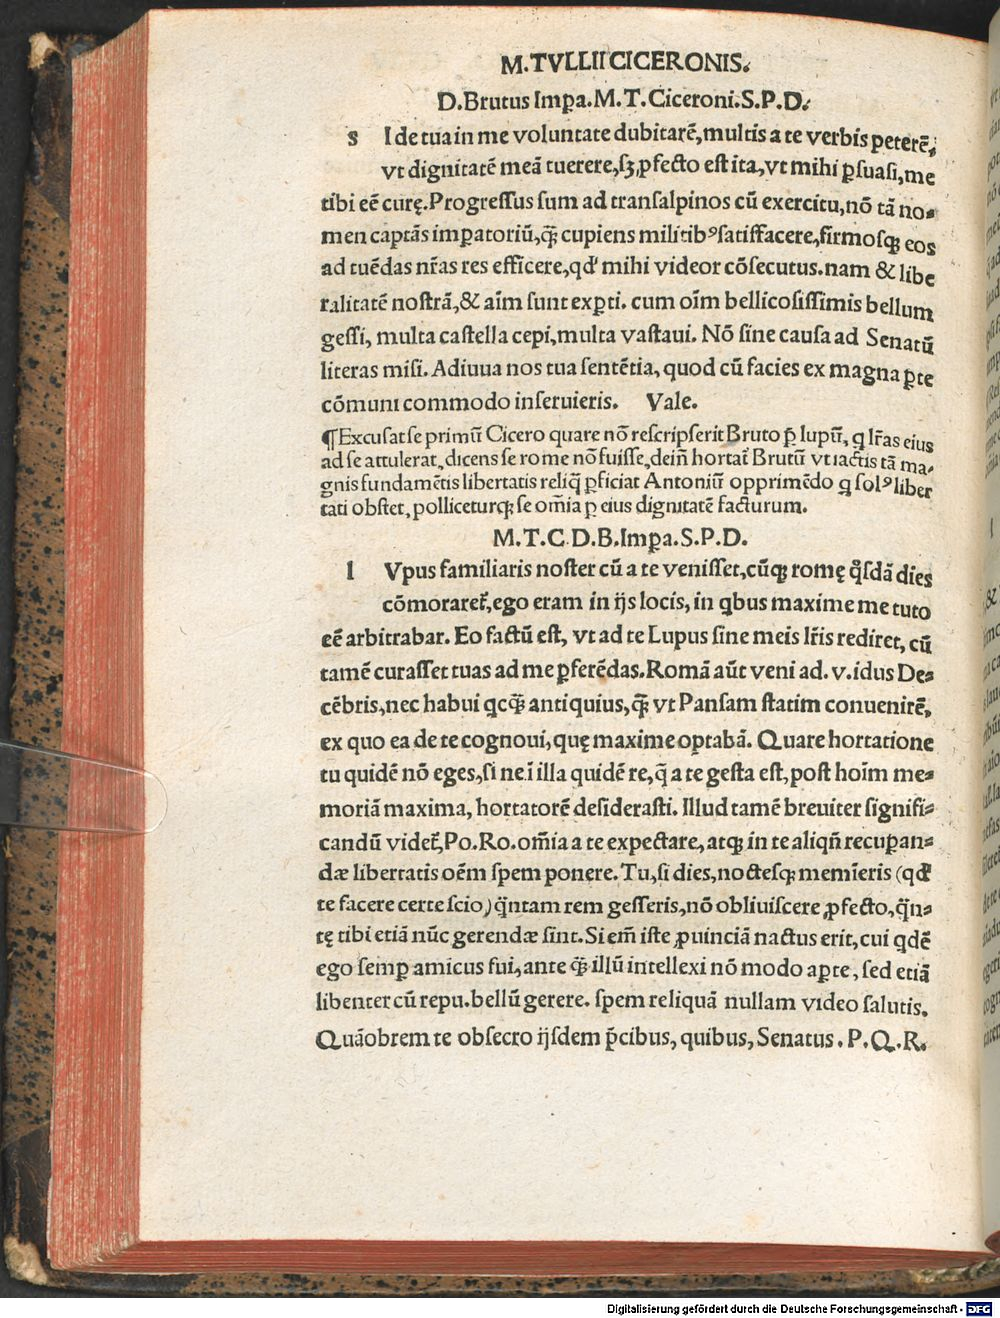 M.TVLLII CICERONIS.
D.Brutus Impa.M.T.Ciceroni.S.P.D.
s I de tua in me voluntate dubitarē,multis a te verbis peterē,
vt dignitatē meā tuerere,sꝫ,ꝓfecto est ita,vt mihi ꝑsuasi,me
tibi eē curę.Progressus sum ad transalpinos cū exercitu,nō tā no⸗
men captās imꝑatoriū,q̄ꝫ cupiens militibꝰ satisfacere,firmosqꝫ eos
ad tuēdas nr̄as res efficere,qd' mihi videor cōsecutus.nam & libe
ralitatē nostrā,& aīm sunt exꝑti. cum oīm bellicosissimis bellum
gessi, multa castella cepi,multa vastaui. Nō sine causa ad Senatū
literas misi. Adiuua nos tua sentētia, quod cū facies ex magna ꝑte
cōmuni commodo inseruieris. Vale.
¶Excusat se primū Cicero quare nō rescripserit Bruto ꝑ lupū, q lr̄as eius
ad se attulerat, dicens se rome nō fuisse, dein̄ hortat̄ Brutū vt iactis tā ma⸗
gnis fundamētis libertatis reliq̄ ꝑficiat Antoniū opprimēdo q solꝰ liber
tati obstet, polliceturqꝫ se om̄ia ꝑ eius dignitatē facturum.
M.T.C.D.B.Impa.S.P.D.
l Vpus familiaris noster cū a te venisset,cūqꝫ romę q̄sdā dies
cōmoraret̄,ego eram in ijs locis, in qbus maxime me tuto
eē arbitrabar. Eo factū est, vt ad te Lupus sine meis lr̄is rediret, cū
tamē curasset tuas ad me ꝑferēdas.Romā aūt veni ad.v.idus De⸗
cēbris,nec habui qcq̄ꝫ antiquius,q̄ꝫ vt Pansam statim conuenirē,
ex quo ea de te cognoui,quę maxime optabā. Quare hortatione
tu quidē nō eges,si nei illa quidē re,q̄ a te gesta est,post hoīm me⸗
moriā maxima, hortatorē desiderasti. Illud tamē breuiter signifi⸗
candū videt̄,Po.Ro.om̄ia a te expectare, atqꝫ in te aliqn̄ recuꝑan⸗
dæ libertatis oēm spem ponere. Tu,si dies,noctesqꝫ memineris (qd'
te facere certe scio) q̄ntam rem gesseris,nō obliuiscere ꝓfecto,q̄n⸗
tę tibi etiā nūc gerendæ sint.Si em̄ iste ꝓuinciā nactus erit,cui qdē
ego semꝑ amicus fui,ante q̄ꝫ illū intellexi nō modo aꝑte, sed etiā
libenter cū repu.bellū gerere. spem reliquā nullam video salutis.
Quāobrem te obsecro ijsdem p̄cibus, quibus, Senatus. P.Q.R.
Digitalisierung gefördert durch die Deutsche Forschungsgemeinschaft - DFG